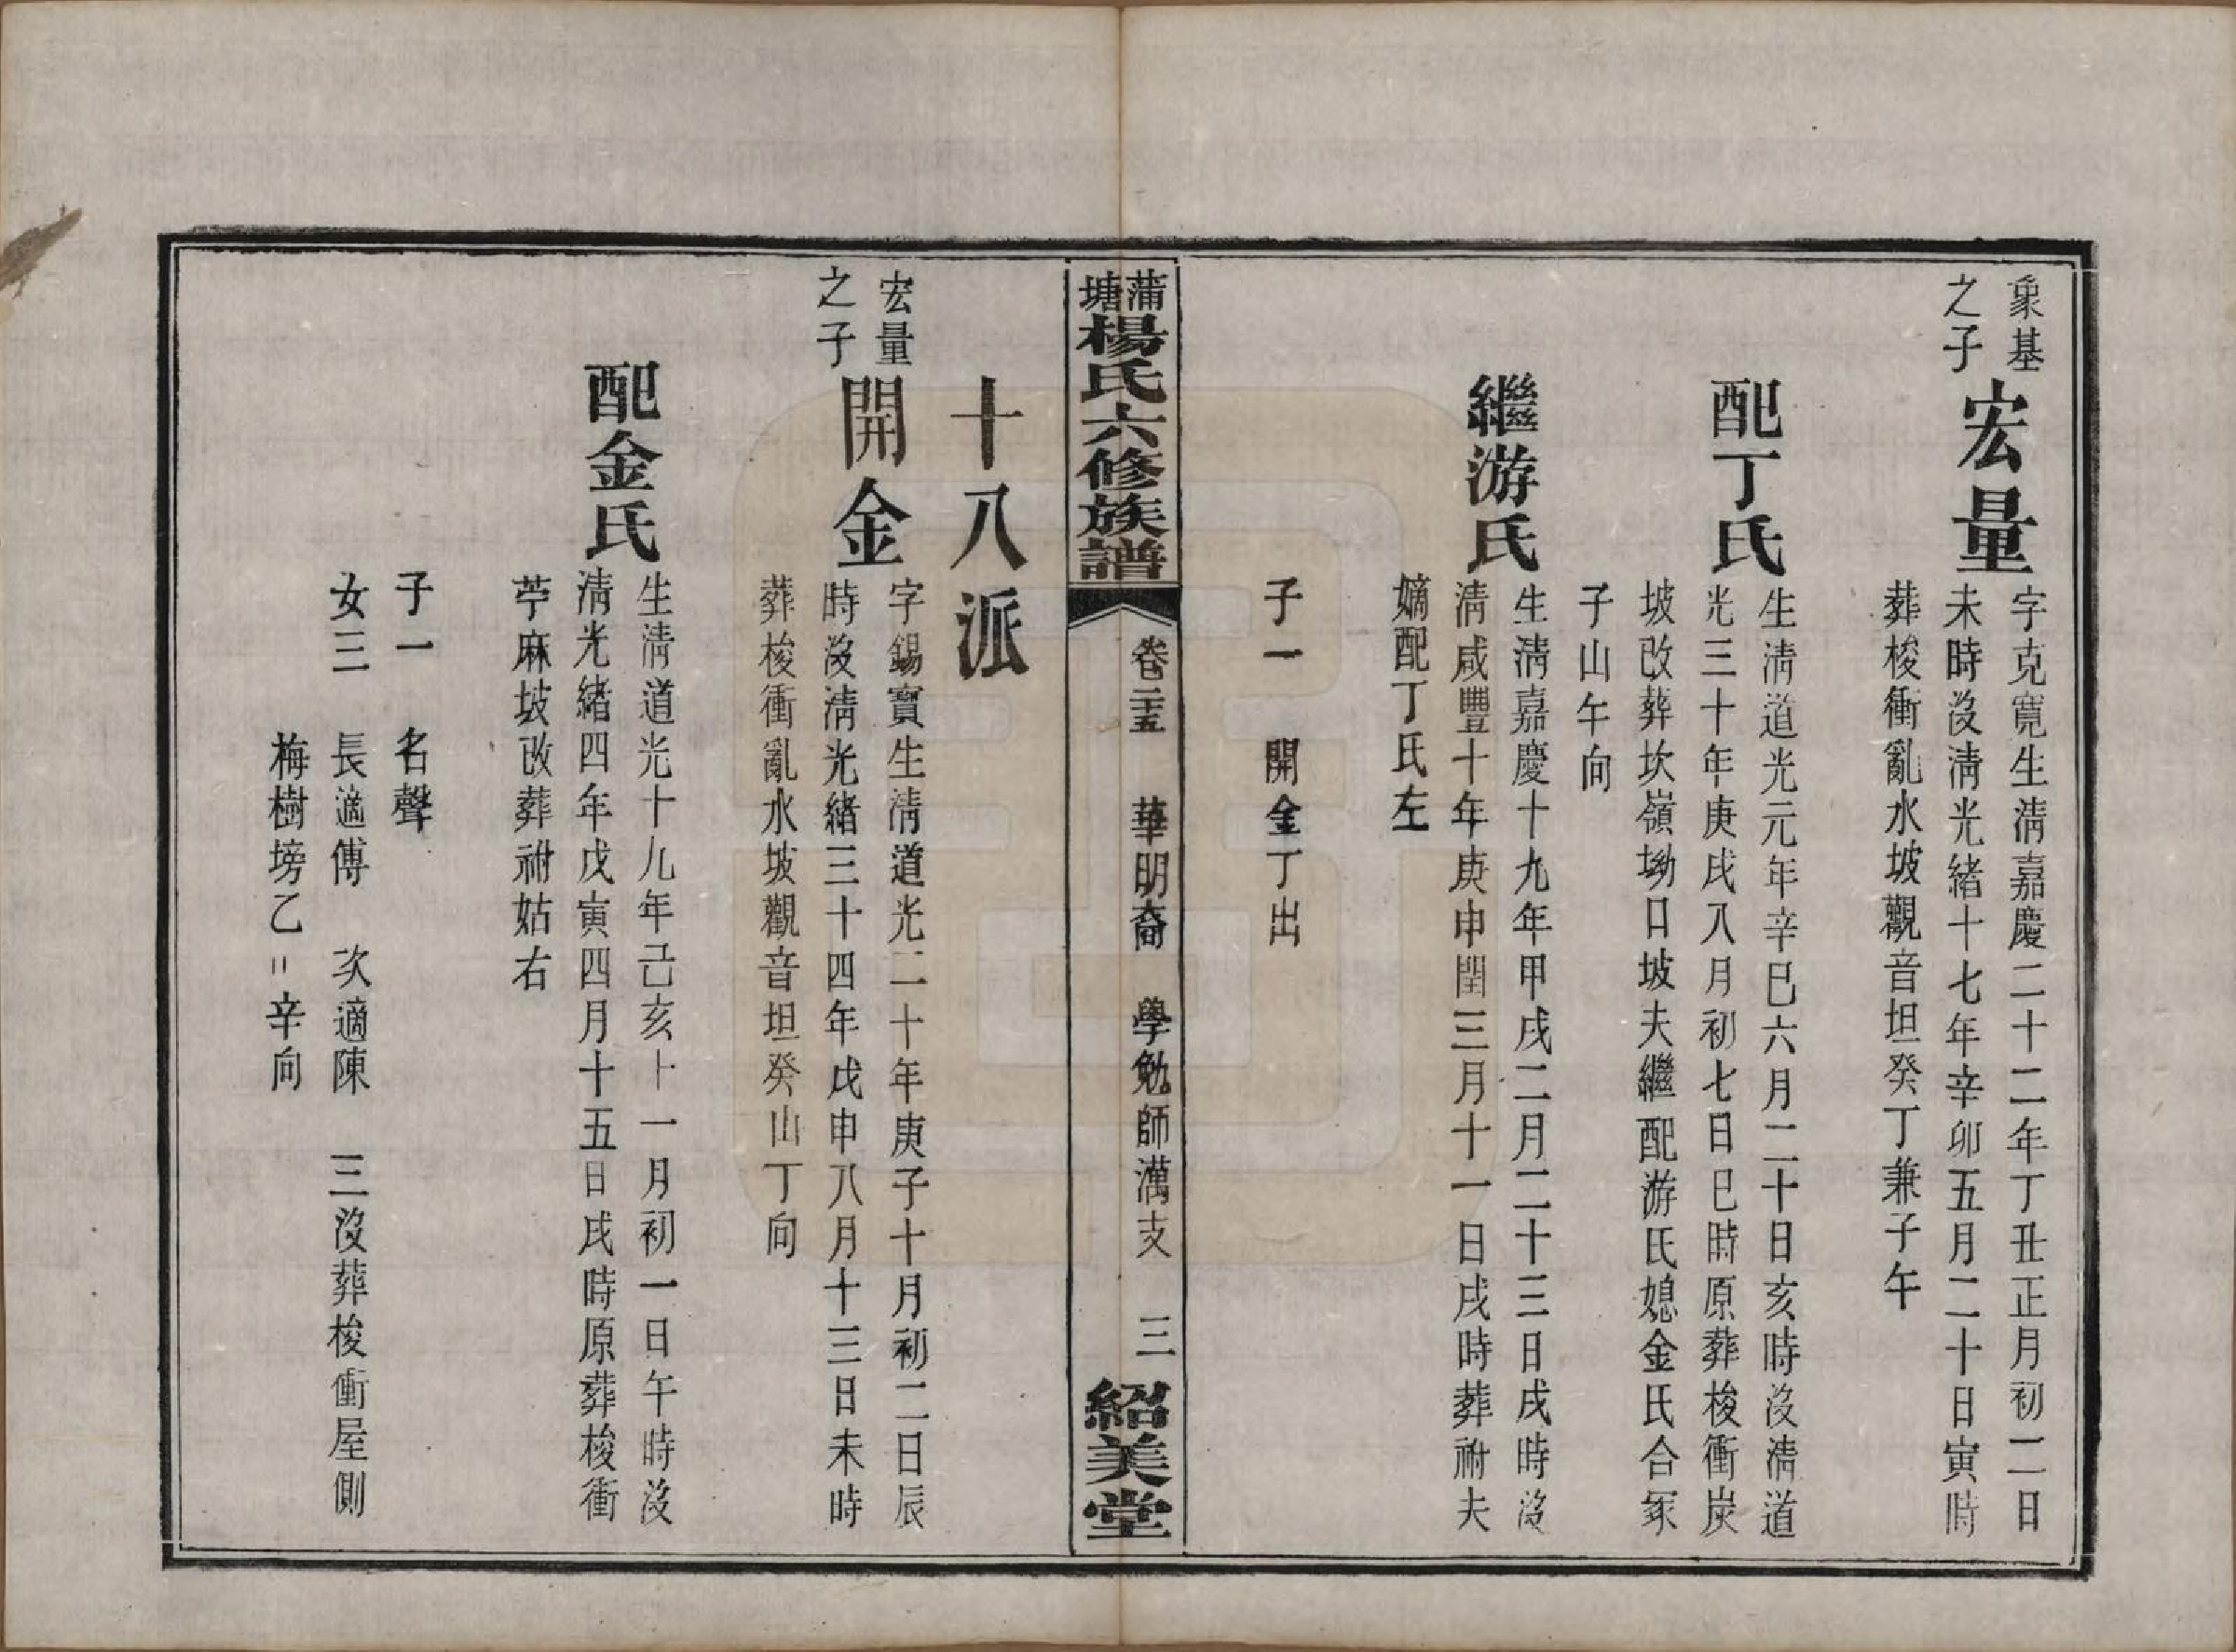 象基
之子
宏量
字克寬生淸嘉慶二十二年丁丑正月初二日
未時沒淸光緒十七年辛卯五月二十日寅時
葬梭衝亂水坡觀音坦癸丁兼子午
配丁氏
生淸道光元年辛巳六月二十日亥時沒淸道
光三十年庚戌八月初七日巳時原葬梭衝炭
坡改葬坎嶺坳口坡夫繼配游氏媳金氏合冢
子山午向
繼游氏
生淸嘉慶十九年甲戌二月二十三日戌時沒
淸咸豐十年庚申閏三月十一日戌時葬祔夫
嫡配丁氏左
子一　開金丁出
蒲塘楊氏六修族譜
卷二十五　華明裔　學勉師澫支　三
紹美堂
十八派
宏量
之子
開金
字錫寶生淸道光二十年庚子十月初二日辰
時沒淸光緒三十四年戊申八月十三日未時
葬梭衝亂水坡觀音坦癸山丁向
配金氏
生淸道光十九年己亥十一月初一日午時沒
淸光緒四年戊寅四月十五日戌時原葬梭衝
苧麻坡改葬祔姑右
子一　名聲
女三　長適傅　次適陳　三沒葬梭衝屋側
梅樹塝乙〓辛向